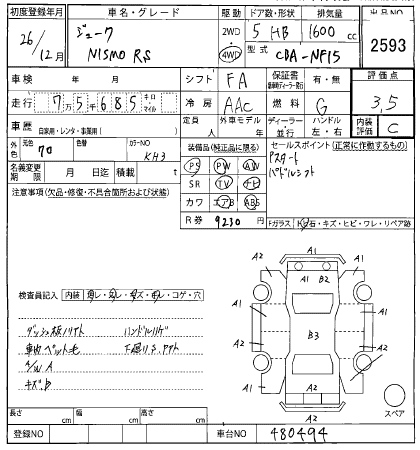 初度登録年月 車名・グレード 駆動 ドア数・形状 排気量 出品NO
26年 12月 ジューク NISMO RS 2WD 4WD 5 HB 1600 cc 2593
型式 CBA-NF15
車検 年 月 シフト FA 保証書 有・無 評価点
走行 7万5千685 キロ・マイル 冷房 AAC 燃料 G 3.5
車歴 自家用・レンタ・事業用( ) 定員 人 外車モデル 年 ディーラー 並行 ハンドル 左・右 内装評価 C
外色 元色 色替 カラーNO KH3
装備品(純正品に限る) セールスポイント(正常に作動するもの)
PS PW AW Pスタート
名義変更期限 月 日迄 積載 t SR TV ナビ パドルシフト
注意事項(欠品・修復・不具合箇所および状態) カワ エアB ABS
R券 9230 円 Fガラス 石・キズ・ヒビ・ワレ・リペア跡
A1
A2 A1 B2 A2
A1 A1
B3
A2 A2
A2
A2
検査員記入 内装 コゲ・穴
車内ペット毛
A/W A
キズ
スペア
長さ cm 幅 cm 高さ cm
登録NO 車台NO 480494